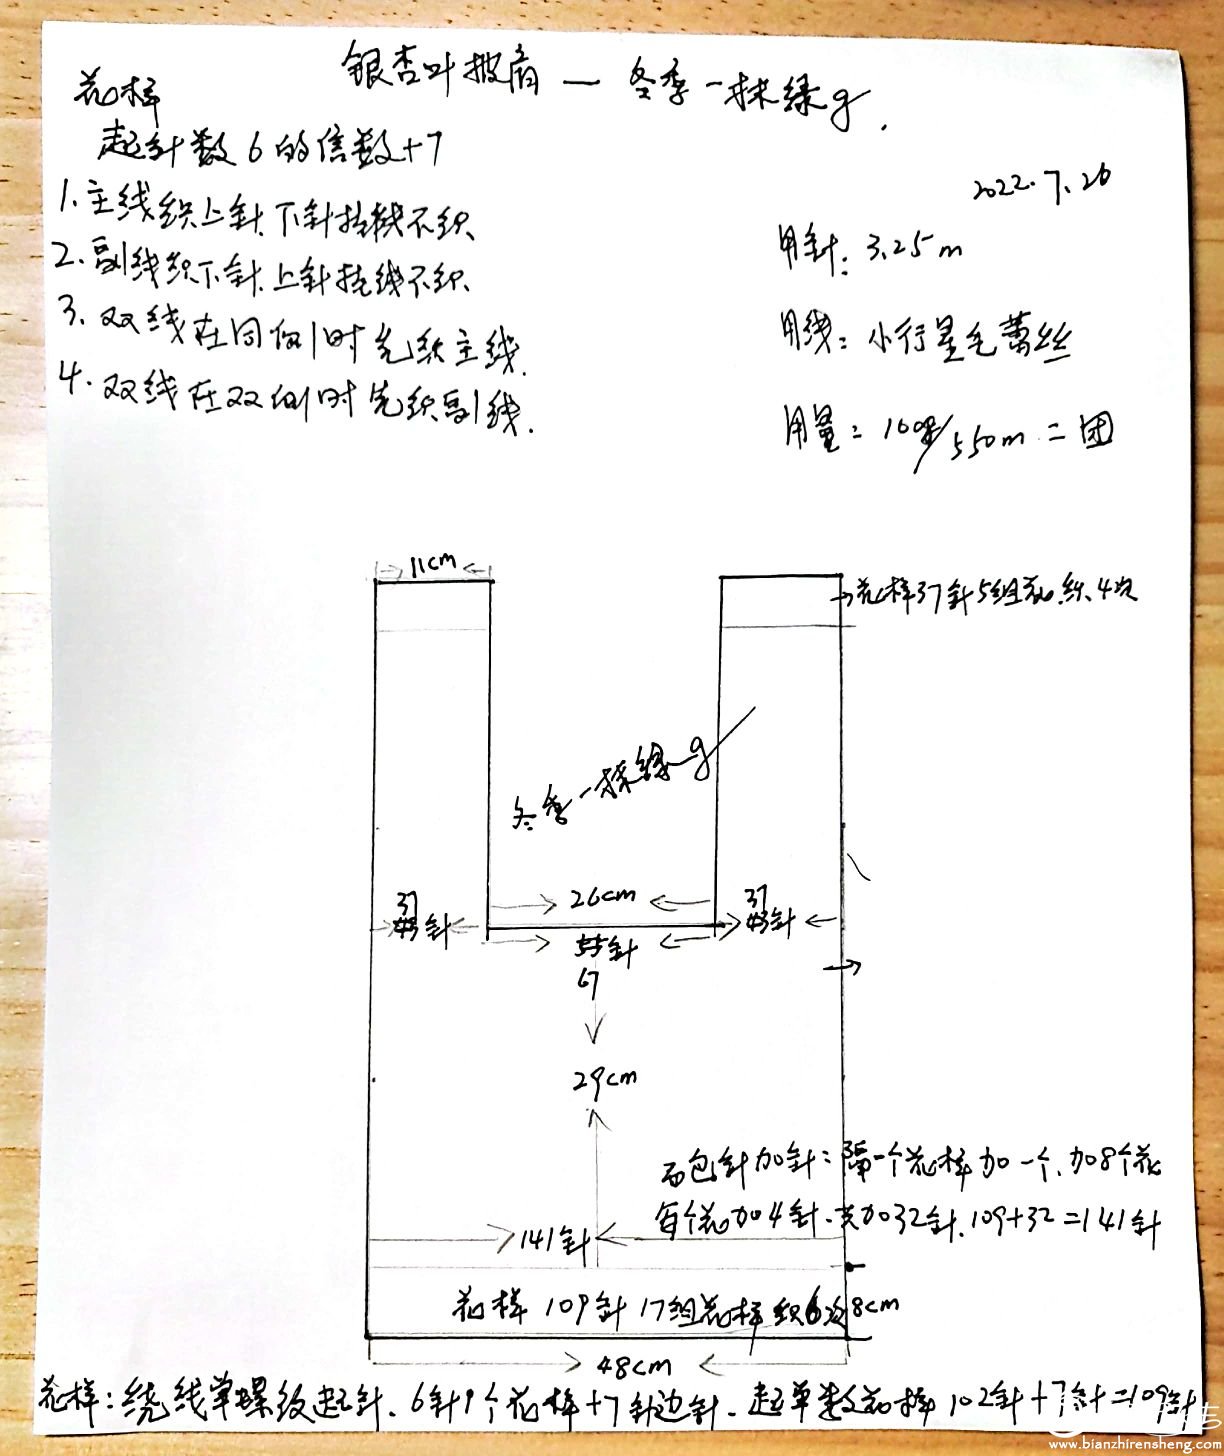 银杏叶披肩 — 冬季一抹绿g.
花样
起针数6的倍数+7
2022.7.26
1.主线织上针.下针挂线不织
2.副线织下针.上针挂线不织
3.双线在同侧时先织主线.
4.双线在双侧时先织副线.
用针: 3.25m
用线: 小行星毛蕾丝
用量: 100g/550m 二团
11cm
花样37针5组花织4次
冬季一抹绿g
26cm
37
针
37
针
55针
67
29cm
面包针加针: 隔一个花样加一个.加8个花
每个花加4针.共加32针.109+32=141针
141针
花样 109针 17组花样织6次8cm
48cm
花样: 绕线单螺纹起针.6针1个花样+7针边针.起单数花样102针+7针=109针
www.bianzhirensheng.com